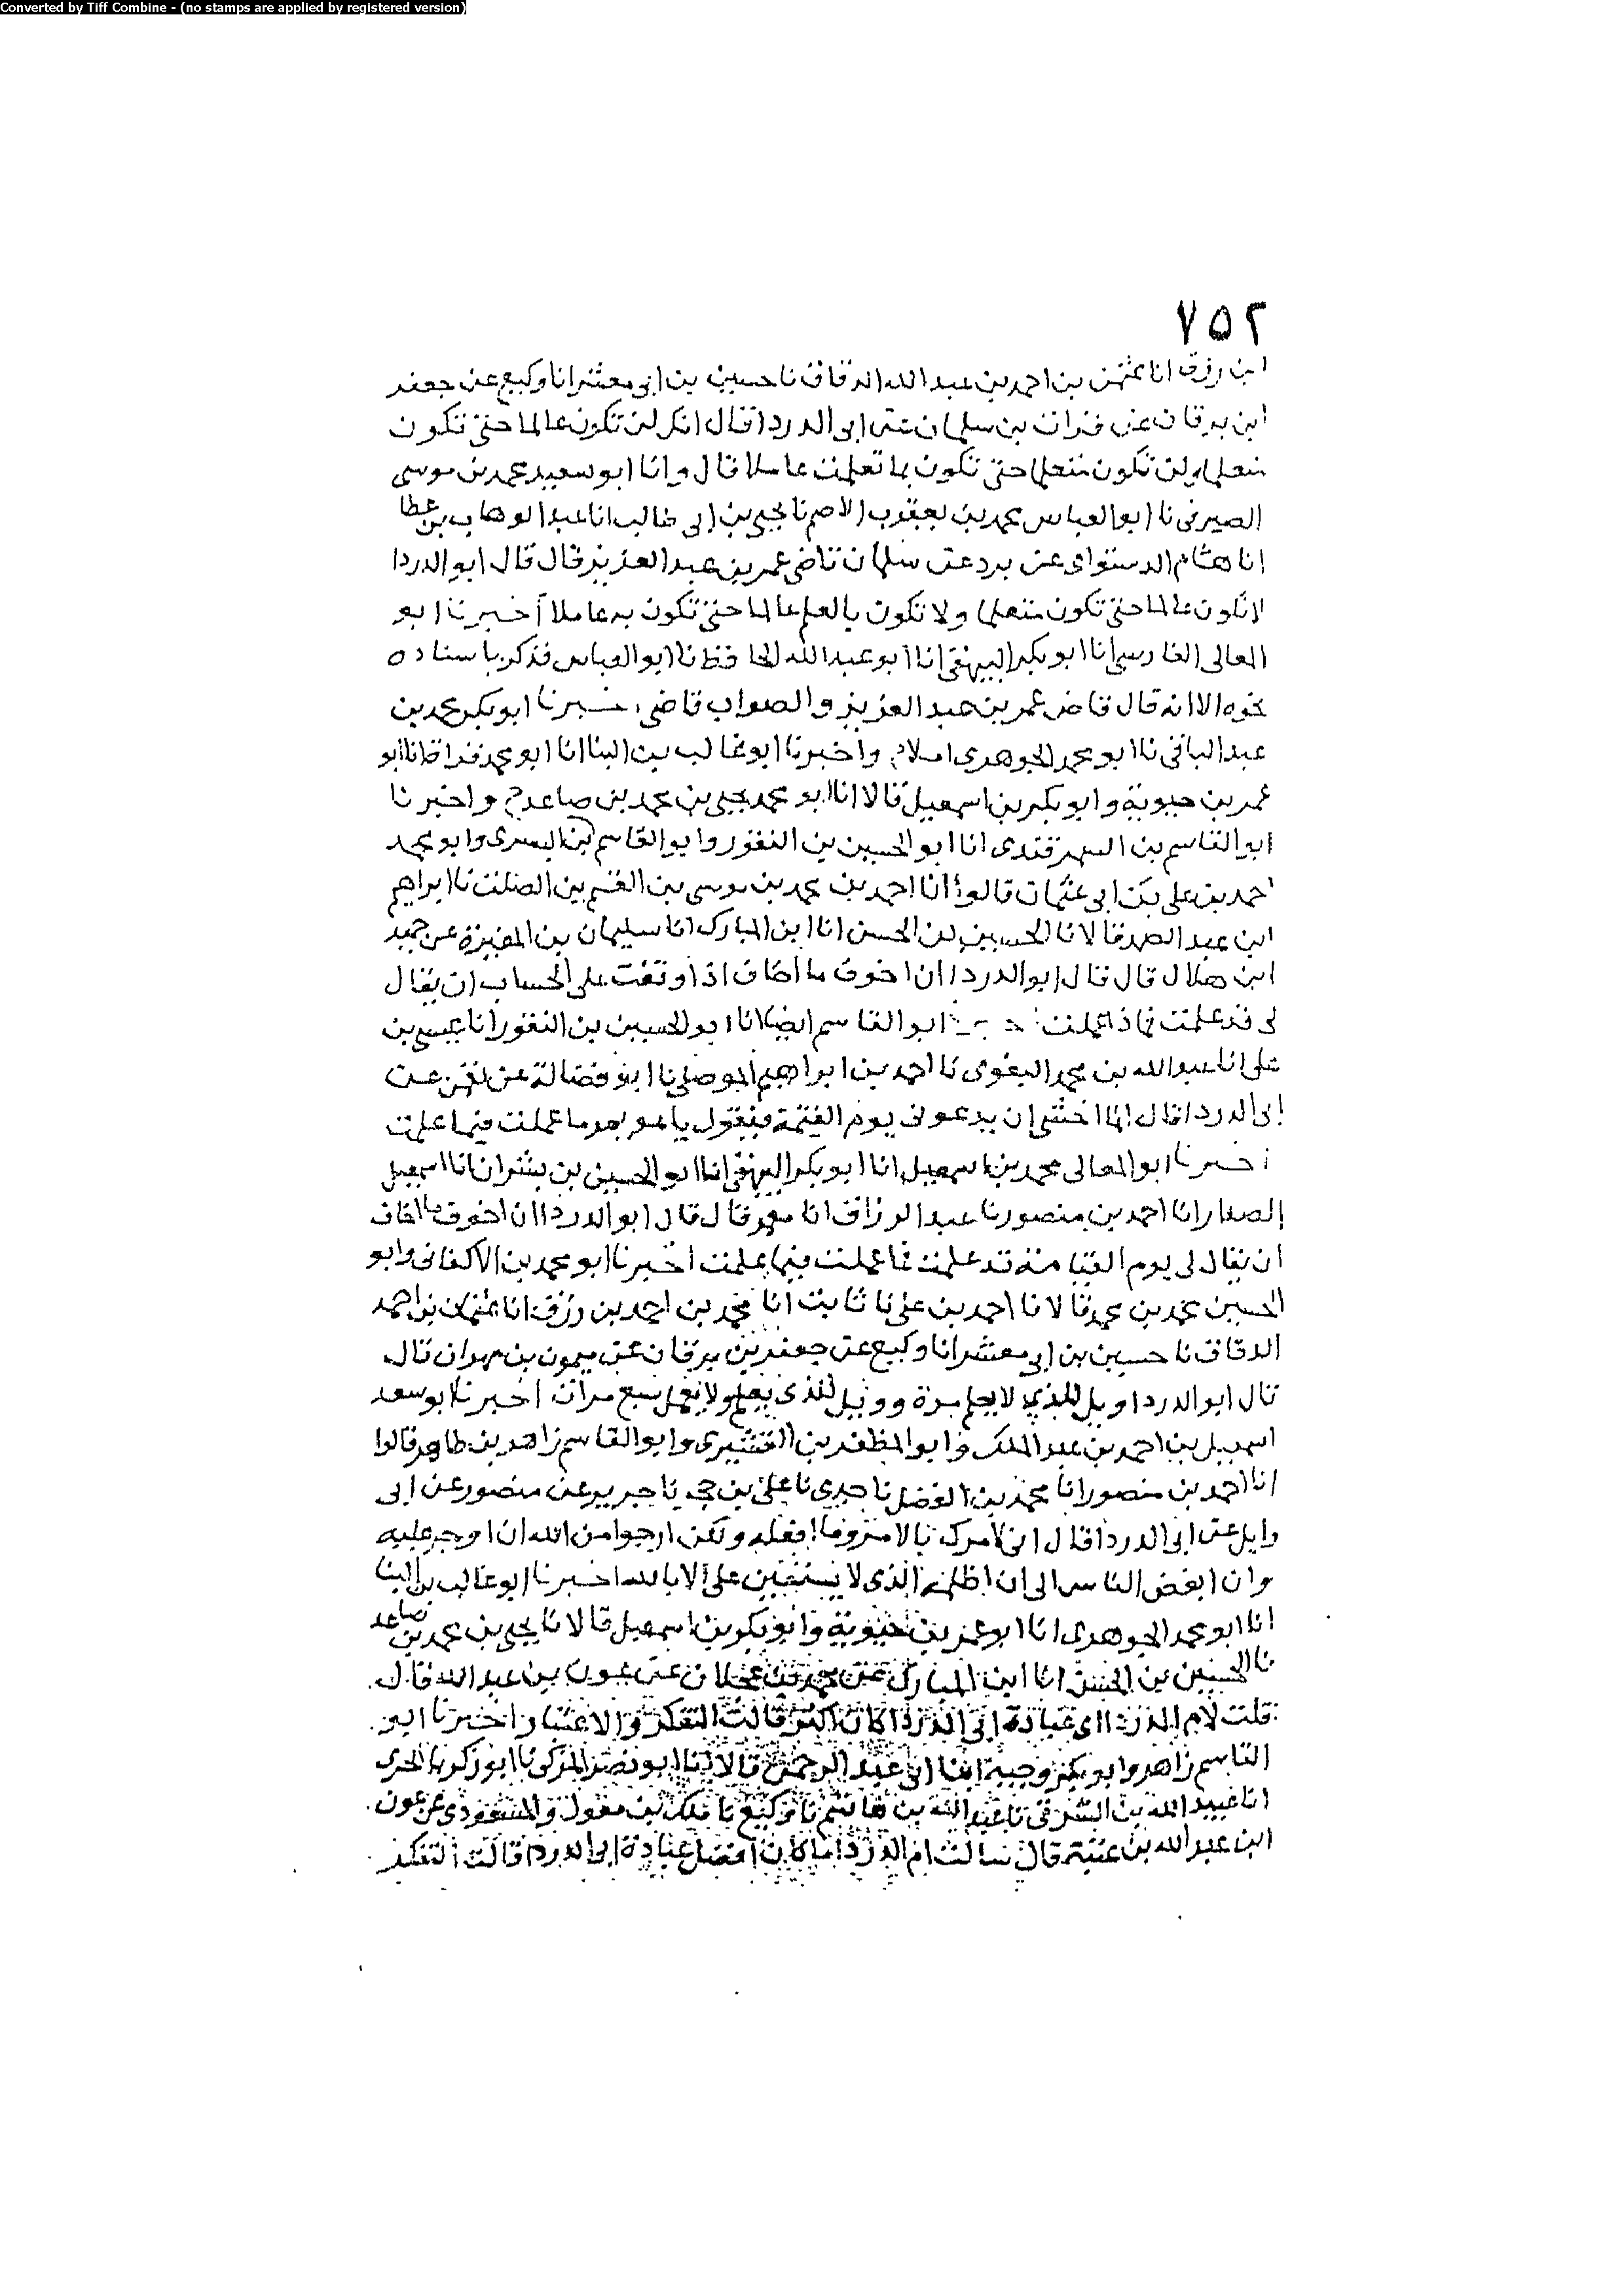 Converted by Tiff Combine - (no stamps are applied by registered version)
٧٥٢
ابن رزق انا عثمن بن احمد بن عبد الله الدقاق نا حسين بن ابى معشر انا وكيع عن جعفر
ابن برقان عن فرات بن سلمان عن ابى الدردا قال انك لن تكون عالما حتى تكون
متعلما ولن تكون متعلما حتى تكون بما تعلمت عاملا قال وانا ابو سعيد محمد بن موسى
الصيرفى نا ابو العباس محمد بن يعقوب الاصم نا يحيى بن ابى طالب انا عبد الوهاب بن عطا
انا هشام الدستواى عن برد عن سلمان قاضى عمر بن عبد العزيز قال قال ابو الدردا
لا تكون عالما حتى تكون متعلما ولا تكون بالعلم عالما حتى تكون به عاملا أخبرنا ابو
المعالى الفارسى انا ابو بكر البيهقى انا ابو عبد الله الحافظ نا ابو العباس فذكر باسناده
نحوه الا انه قال قاض عمر بن عبد العزيز والصواب قاضى خبرنا ابو بكر محمد بن
عبد الباقى نا ابو محمد الجوهرى املا واخبرنا ابو غالب بن البنا انا ابو محمد قراة انا ابو
عمر بن حيوية وابو بكر بن اسمعيل قالا انا ابو محمد يحيى بن محمد بن صاعد ح واخبرنا
ابو القاسم بن السمرقندى انا ابو الحسين بن النقور وابو القاسم بن البسرى وابو محمد
احمد بن على بن ابى عثمان قالوا انا احمد بن محمد بن موسى بن القسم بن الصلت نا ابراهيم
ابن عبد الصمد قالا نا الحسين بن الحسن انا ابن المبارك انا سليمان بن المغيرة عن حميد
ابن هلال قال قال ابو الدردا ان اخوف ما اخاف اذا وقفت على الحساب ان يقال
لى قد علمت فماذا عملت ابو القاسم ايضا انا ابو الحسين بن النقور انا عيسى بن
على انا عبد الله بن محمد البغوى نا احمد بن ابراهيم الموصلى نا ابو فضالة عن لقمن عن
ابى الدردا قال انما اخشى ان يدعونى يوم القيمة فيقول يا عويمر ما عملت فيما علمت
اخبرنا ابو المعالى محمد بن اسمعيل انا ابو بكر البيهقى انا ابو الحسين بن بشران انا اسمعيل
الصفار انا احمد بن منصور نا عبد الرزاق انا معمر قال قال ابو الدردا ان اخوف ما اخاف
ان يقال لى يوم القيامة قد علمت فما عملت فيما علمت اخبرنا ابو محمد بن الاكفانى وابو
الحسين محمد بن محمد قالا نا احمد بن على نا ثابت انا محمد بن احمد بن رزق انا عثمان بن احمد
الدقاق نا حسين بن ابى معشر انا وكيع عن جعفر بن برقان عن ميمون بن مهران قال
قال ابو الدردا ويل للذي لا يعلم مرة وويل للذى يعلم ولا يعمل سبع مرات اخبرنا ابو سعد
اسمعيل بن احمد بن عبد الملك وابو المظفر بن القشيرى وابو القاسم زاهر بن طاهر قالوا
انا احمد بن منصور انا محمد بن الفضل نا جدى نا على بن حجر نا جرير عن منصور عن ابى
وايل عن ابى الدردا قال انى لأمرك بالامر وما افعله ولكن ارجوا من الله ان اوجر عليه
وان ابغض الناس الى ان اظلمه الذى لا يستعين على الا بالله اخبرنا ابو غالب بن البنا
انا ابو محمد الجوهرى انا ابو عمر بن حيوية وابو بكر بن اسمعيل قالا نا يحيى بن محمد بن صاعد
نا الحسين بن الحسن انا ابن المبارك عن محمد بن عجلان عن عون بن عبد الله قال
قلت لام الدردا اى عبادة ابى الدردا كان اكثر قالت التفكر والاعتبار اخبرنا ابو
القاسم زاهر وابو بكر وجيه ابنا ابى عبد الرحمن قالا انا ابو نصر المزكى نا ابو زكريا الحربى
انا عبيد الله بن الشرقى نا عبد الله بن هاشم نا وكيع نا ملك بن مغول والمسعودى عن عون
ابن عبد الله بن عتبة قال سالت ام الدردا ما كان افضل عبادة ابى الدردا قالت التفكر